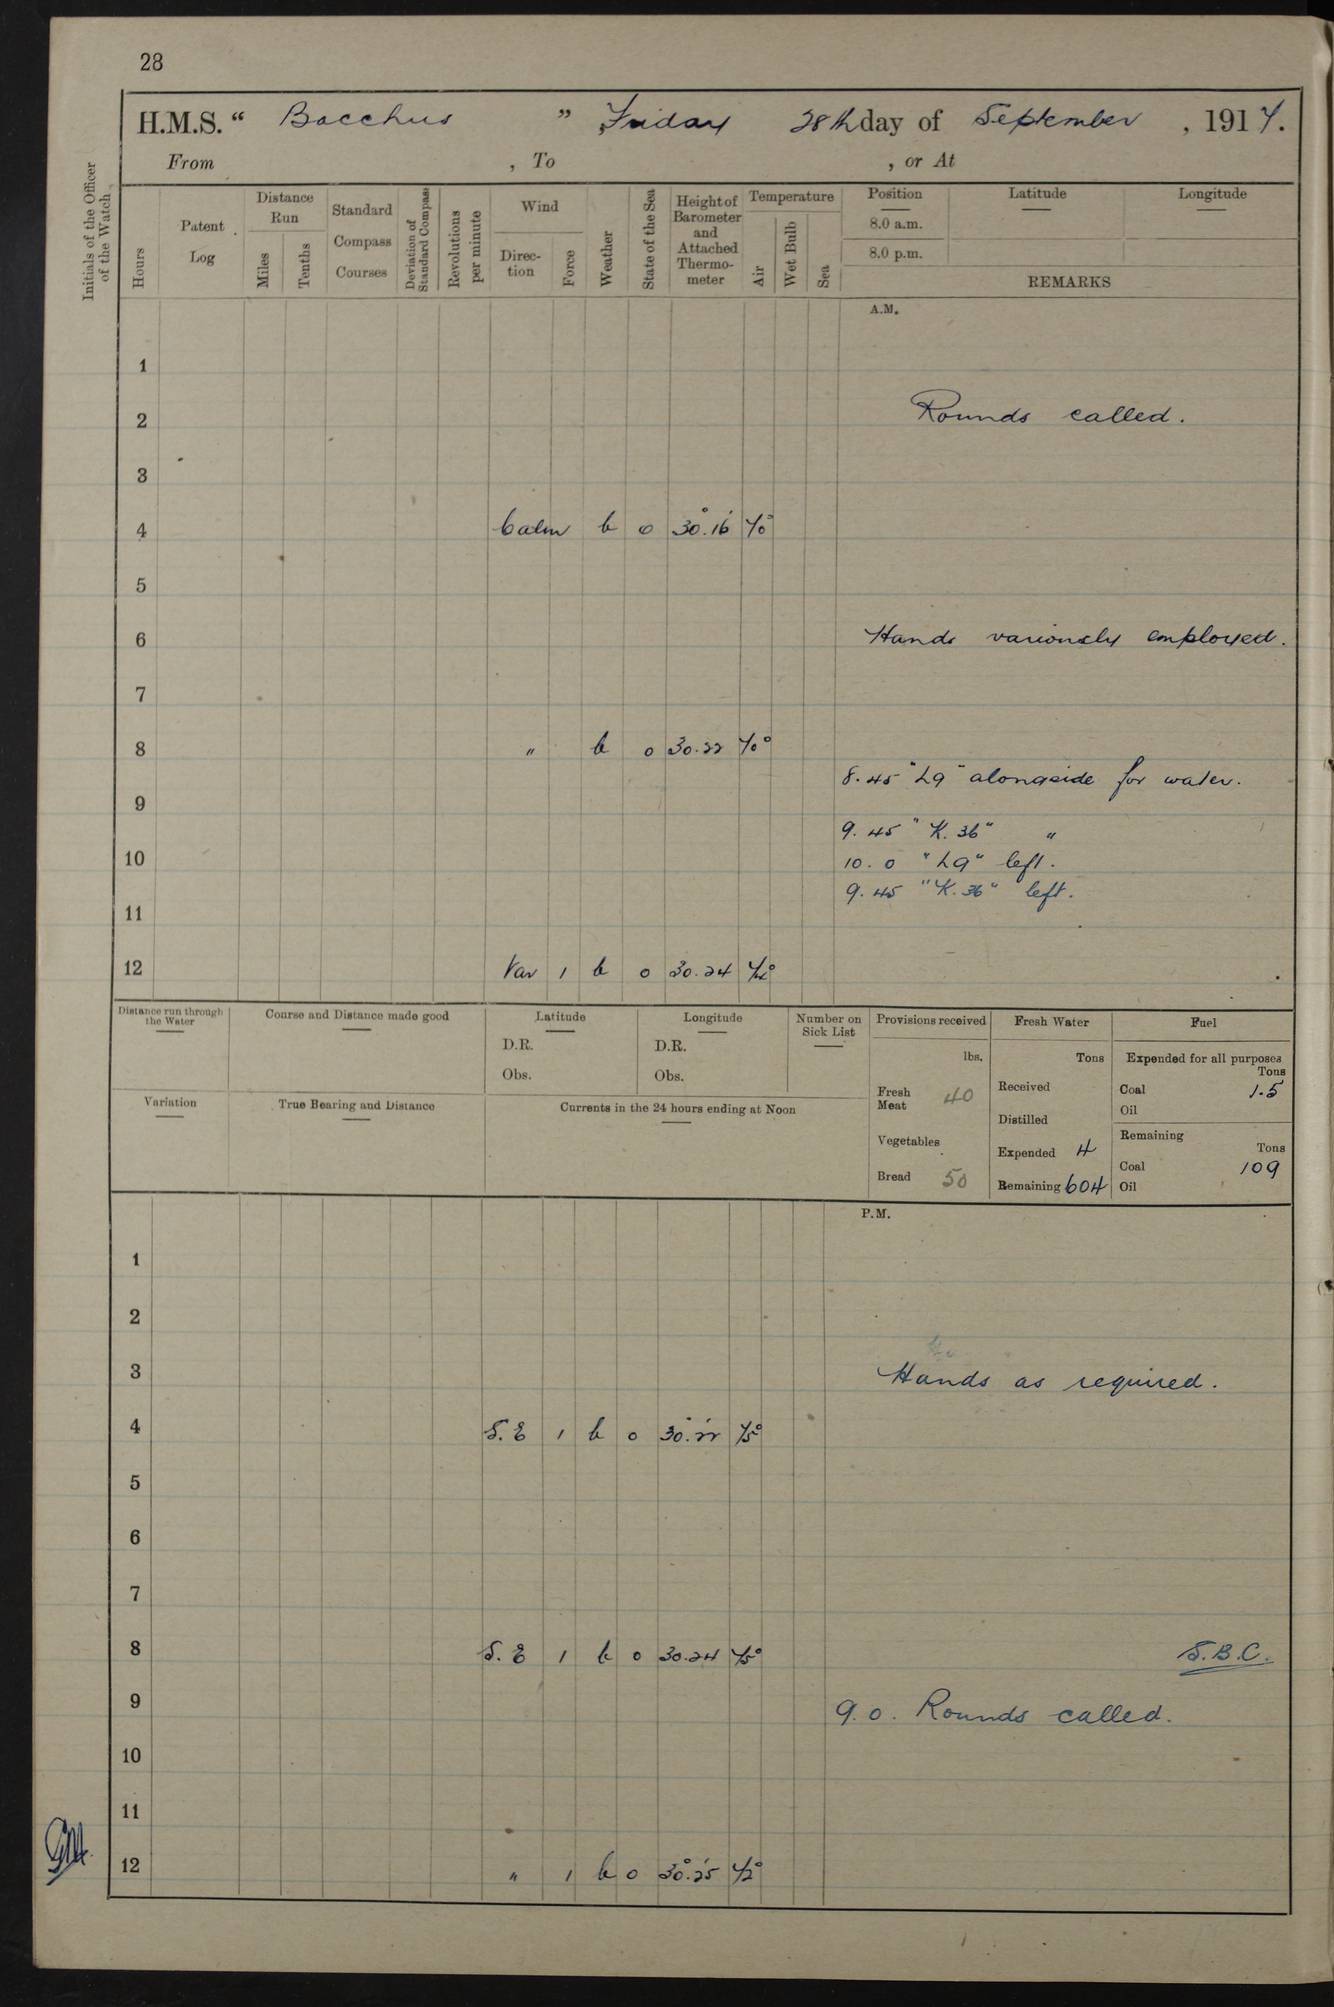 28
H.M.S. “ Bacchus ” , Friday 28th day of September , 1917.
From , To , or At
Initials of the Officer of the Watch
Hours
Patent Log
Distance Run
Miles
Tenths
Standard Compass Courses
Deviation of Standard Compass
Revolutions per minute
Wind
Direc-tion
Force
Weather
State of the Sea
Height of Barometer and Attached Thermo-meter
Temperature
Air
Wet Bulb
Sea
Position Latitude Longitude
8.0 a.m.
8.0 p.m.
REMARKS
A.M.
1
2 Rounds called.
3
4 Calm b 0 30.16 70°
5
6 Hands variously employed.
7
8 " b 0 30.22 70°
8.45 "L9" alongside for water.
9
9.45 "K.36" "
10 10.0 "L9" left.
9.45 "K.36" left.
11
12 Var 1 b 0 30.24 72°
Distance run through the Water
Course and Distance made good
Latitude
D.R.
Obs.
Longitude
D.R.
Obs.
Number on Sick List
Provisions received
lbs.
Fresh Meat 40
Vegetables
Bread 50
Fresh Water
Tons
Received
Distilled
Expended 4
Remaining 604
Fuel
Expended for all purposes
Tons
Coal 1.5
Oil
Remaining
Tons
Coal 109
Oil
Variation
True Bearing and Distance
Currents in the 24 hours ending at Noon
P.M.
1
2
3 Hands as required.
4 S.E 1 b 0 30.22 75°
5
6
7
8 S.E 1 b 0 30.24 75° S.B.C.
9 9.0. Rounds called.
10
11
12 " 1 b 0 30.25 72°